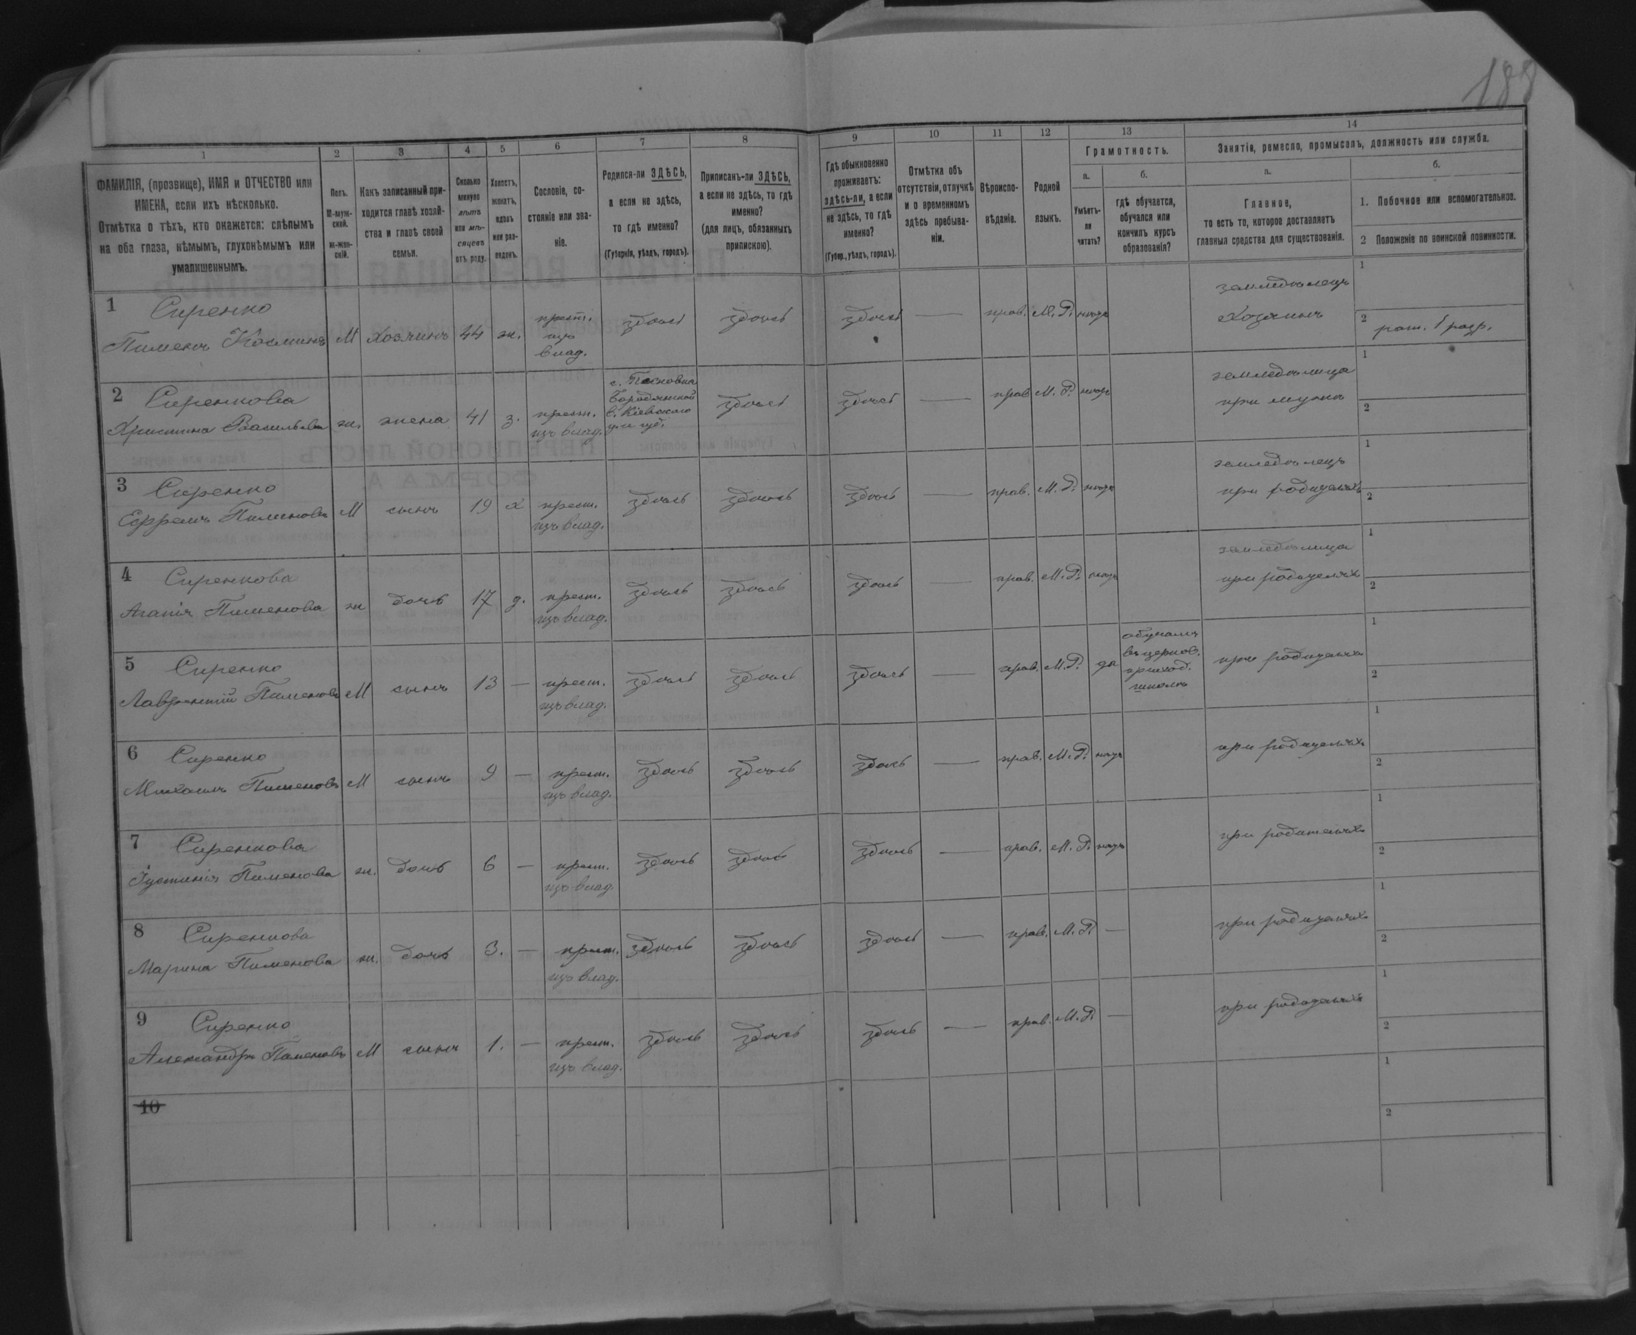 188
1
2
3
4
5
6
7
8
9
10
11
12
13
14
ФАМИЛІЯ, (прозвище), ИМЯ и ОТЧЕСТВО или
ИМЕНА, если ихъ нѣсколько.
Отмѣтка о тѣхъ, кто окажется: слѣпымъ
на оба глаза, нѣмымъ, глухонѣмымъ или
умалишеннымъ.
Полъ.
М-муж-
ской.
ж-жен-
скій.
Какъ записанный при-
ходится главѣ хозяй-
ства и главѣ своей
семьи.
Сколько
минуло
лѣтъ
или мѣ-
сяцевъ
отъ роду.
Холостъ,
женатъ,
вдовъ
или раз-
веденъ.
Сословіе, со-
стояніе или зва-
ніе.
Родился-ли ЗДѢСЬ,
а если не здѣсь,
то гдѣ именно?
(Губернія, уѣздъ, городъ).
Приписанъ-ли ЗДѢСЬ,
а если не здѣсь, то гдѣ
именно?
(для лицъ, обязанныхъ
припискою).
Гдѣ обыкновенно
проживаетъ:
здѣсь-ли, а если
не здѣсь, то гдѣ
именно?
(Губер., уѣздъ, городъ).
Отмѣтка объ
отсутствіи, отлучкѣ
и о временномъ
здѣсь пребыва-
ніи.
Вѣроиспо-
вѣданіе.
Родной
языкъ.
Грамотность.
а.
Умѣетъ-
ли
читать?
б.
гдѣ обучается,
обучался или
кончилъ курсъ
образованія?
Занятіе, ремесло, промыселъ, должность или служба.
а.
Главное,
то есть то, которое доставляетъ
главныя средства для существованія.
б.
1. Побочное или вспомогательное.
2 Положеніе по воинской повинности.
1 Сиренко
Пименъ Косминъ М хозяинъ 44 ж. крест. изъ влад. здѣсь здѣсь здѣсь — прав. М.Р. нѣтъ земледѣлецъ хозяинъ 1
2 рат. 1 разр.
2 Сиренкова
Христина Васильева ж. жена 41 з. крест. изъ влад. здѣсь здѣсь — прав. М.Р. нѣтъ земледѣлица при мужѣ 1
2
3 Сиренко
Ефремъ Пименовъ М сынъ 19 х крест. изъ влад. здѣсь здѣсь здѣсь — прав. М.Р. нѣтъ земледѣлецъ при родителяхъ 1
2
4 Сиренкова
Агапія Пименова ж дочь 17 д. крест. изъ влад. здѣсь здѣсь здѣсь — прав. М.Р. нѣтъ земледѣлица при родителяхъ 1
2
5 Сиренко
Лаврентій Пименовъ М сынъ 13 — крест. изъ влад. здѣсь здѣсь здѣсь — прав. М.Р. да обучался въ церков. приход. школѣ при родителяхъ 1
2
6 Сиренко
Михаилъ Пименовъ М сынъ 9 — крест. изъ влад. здѣсь здѣсь здѣсь — прав. М.Р. нѣтъ при родителяхъ 1
2
7 Сиренкова
Іустинія Пименова ж. дочь 6 — крест. изъ влад. здѣсь здѣсь здѣсь — прав. М.Р. нѣтъ при родителяхъ 1
2
8 Сиренкова
Марина Пименова ж. дочь 3. — крест. изъ влад. здѣсь здѣсь здѣсь — прав. М.Р. — при родителяхъ 1
2
9 Сиренко
Александръ Пименовъ М сынъ 1. — крест. изъ влад. здѣсь здѣсь здѣсь — прав. М.Р. — при родителяхъ 1
2
10 1
2